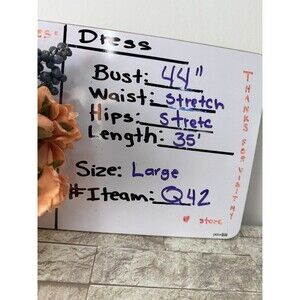 Dress
Bust: 44"
Waist: Stretch
Hips: Stretc
Length: 35'
Size: Large
# Iteam: Q42
THANKS FOR VISIT MY
store